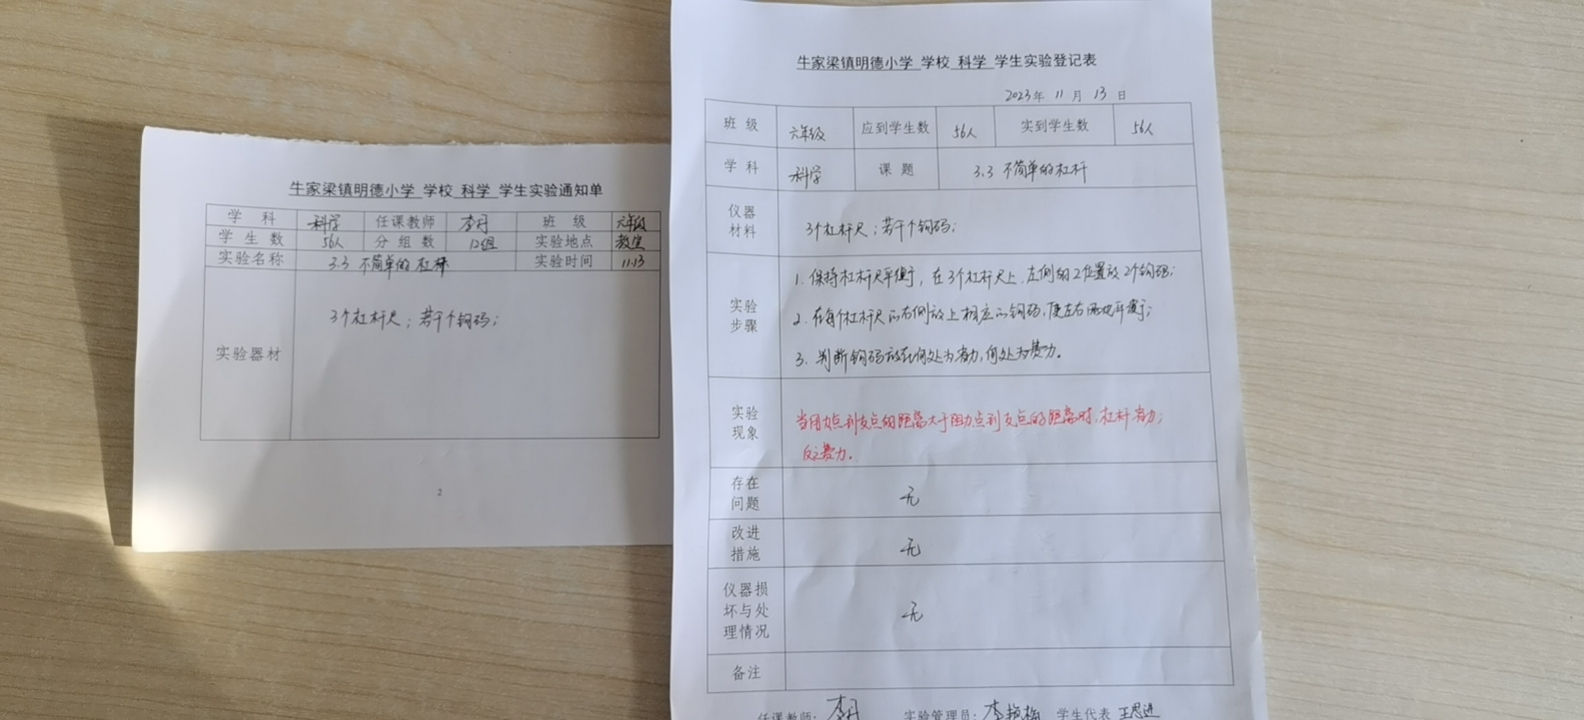 牛家梁镇明德小学 学校 科学 学生实验通知单
学 科 科学 任课教师 李丹 班 级 六年级
学 生 数 56人 分 组 数 12组 实验地点 教室
实验名称 3.3 不简单的杠杆 实验时间 11.13
实验器材 3个杠杆尺；若干个钩码；
2
牛家梁镇明德小学 学校 科学 学生实验登记表
2023年 11月 13日
班 级 六年级 应到学生数 56人 实到学生数 56人
学 科 科学 课 题 3.3 不简单的杠杆
仪器
材料 3个杠杆尺；若干个钩码；
实验
步骤
1. 保持杠杆尺平衡，在3个杠杆尺上，左侧的2位置放2个钩码；
2. 在每个杠杆尺的右侧放上相应的钩码，使左右两边平衡；
3. 判断钩码放在何处为省力，何处为费力。
实验
现象
当用力点到支点的距离大于阻力点到支点的距离时，杠杆省力；
反之费力。
存在
问题 无
改进
措施 无
仪器损
坏与处
理情况 无
备注
任课教师： 李丹 实验管理员： 李 学生代表 王思进